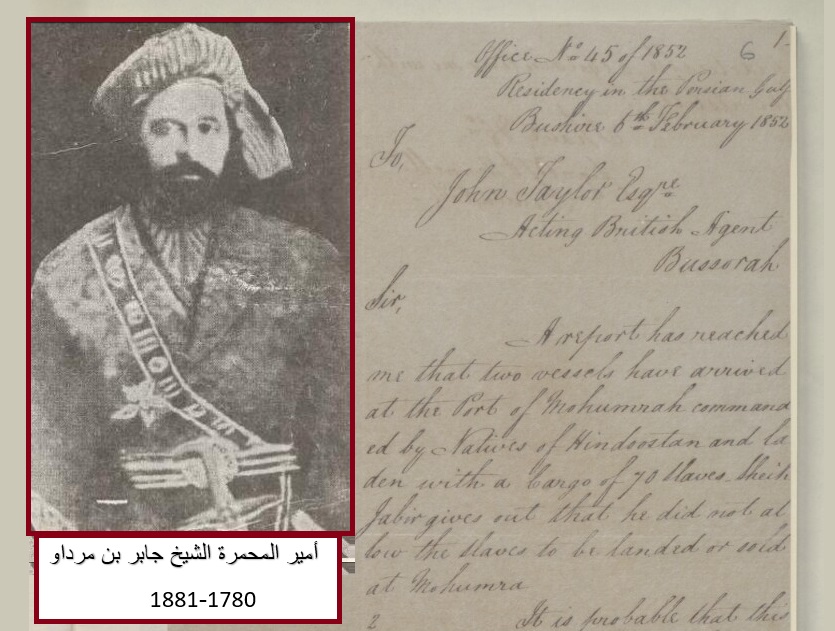 Office No 45 of 1852
6
1-
Residency in the Persian Gulf
Bushire 6th February 1852
To,
John Taylor Esqre
Acting British Agent
Bussorah
Sir,
A report has reached
me that two vessels have arrived
at the Port of Mohumrah command
ed by Natives of Hindoostan and la
den with a Cargo of 70 Slaves. Sheik
Jabir gives out that he did not al
low the slaves to be landed or sold
at Mohumra
2 It is probable that this
أمير المحمرة الشيخ جابر بن مرداو
1881-1780